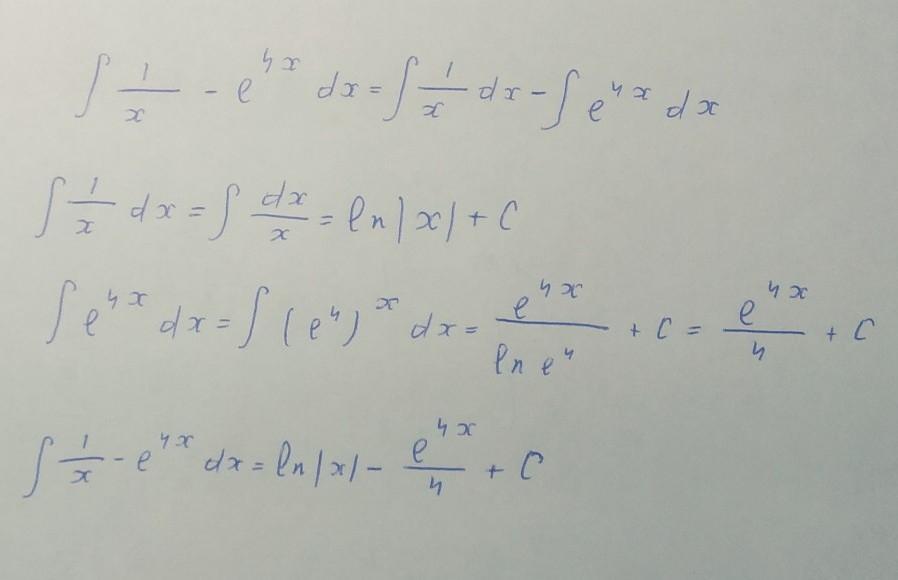 ∫ 1/x - e^{4x} dx = ∫ 1/x dx - ∫ e^{4x} dx
∫ 1/x dx = ∫ dx/x = ln|x| + C
∫ e^{4x} dx = ∫ (e^4)^x dx = e^{4x}/ln e^4 + C = e^{4x}/4 + C
∫ 1/x - e^{4x} dx = ln|x| - e^{4x}/4 + C